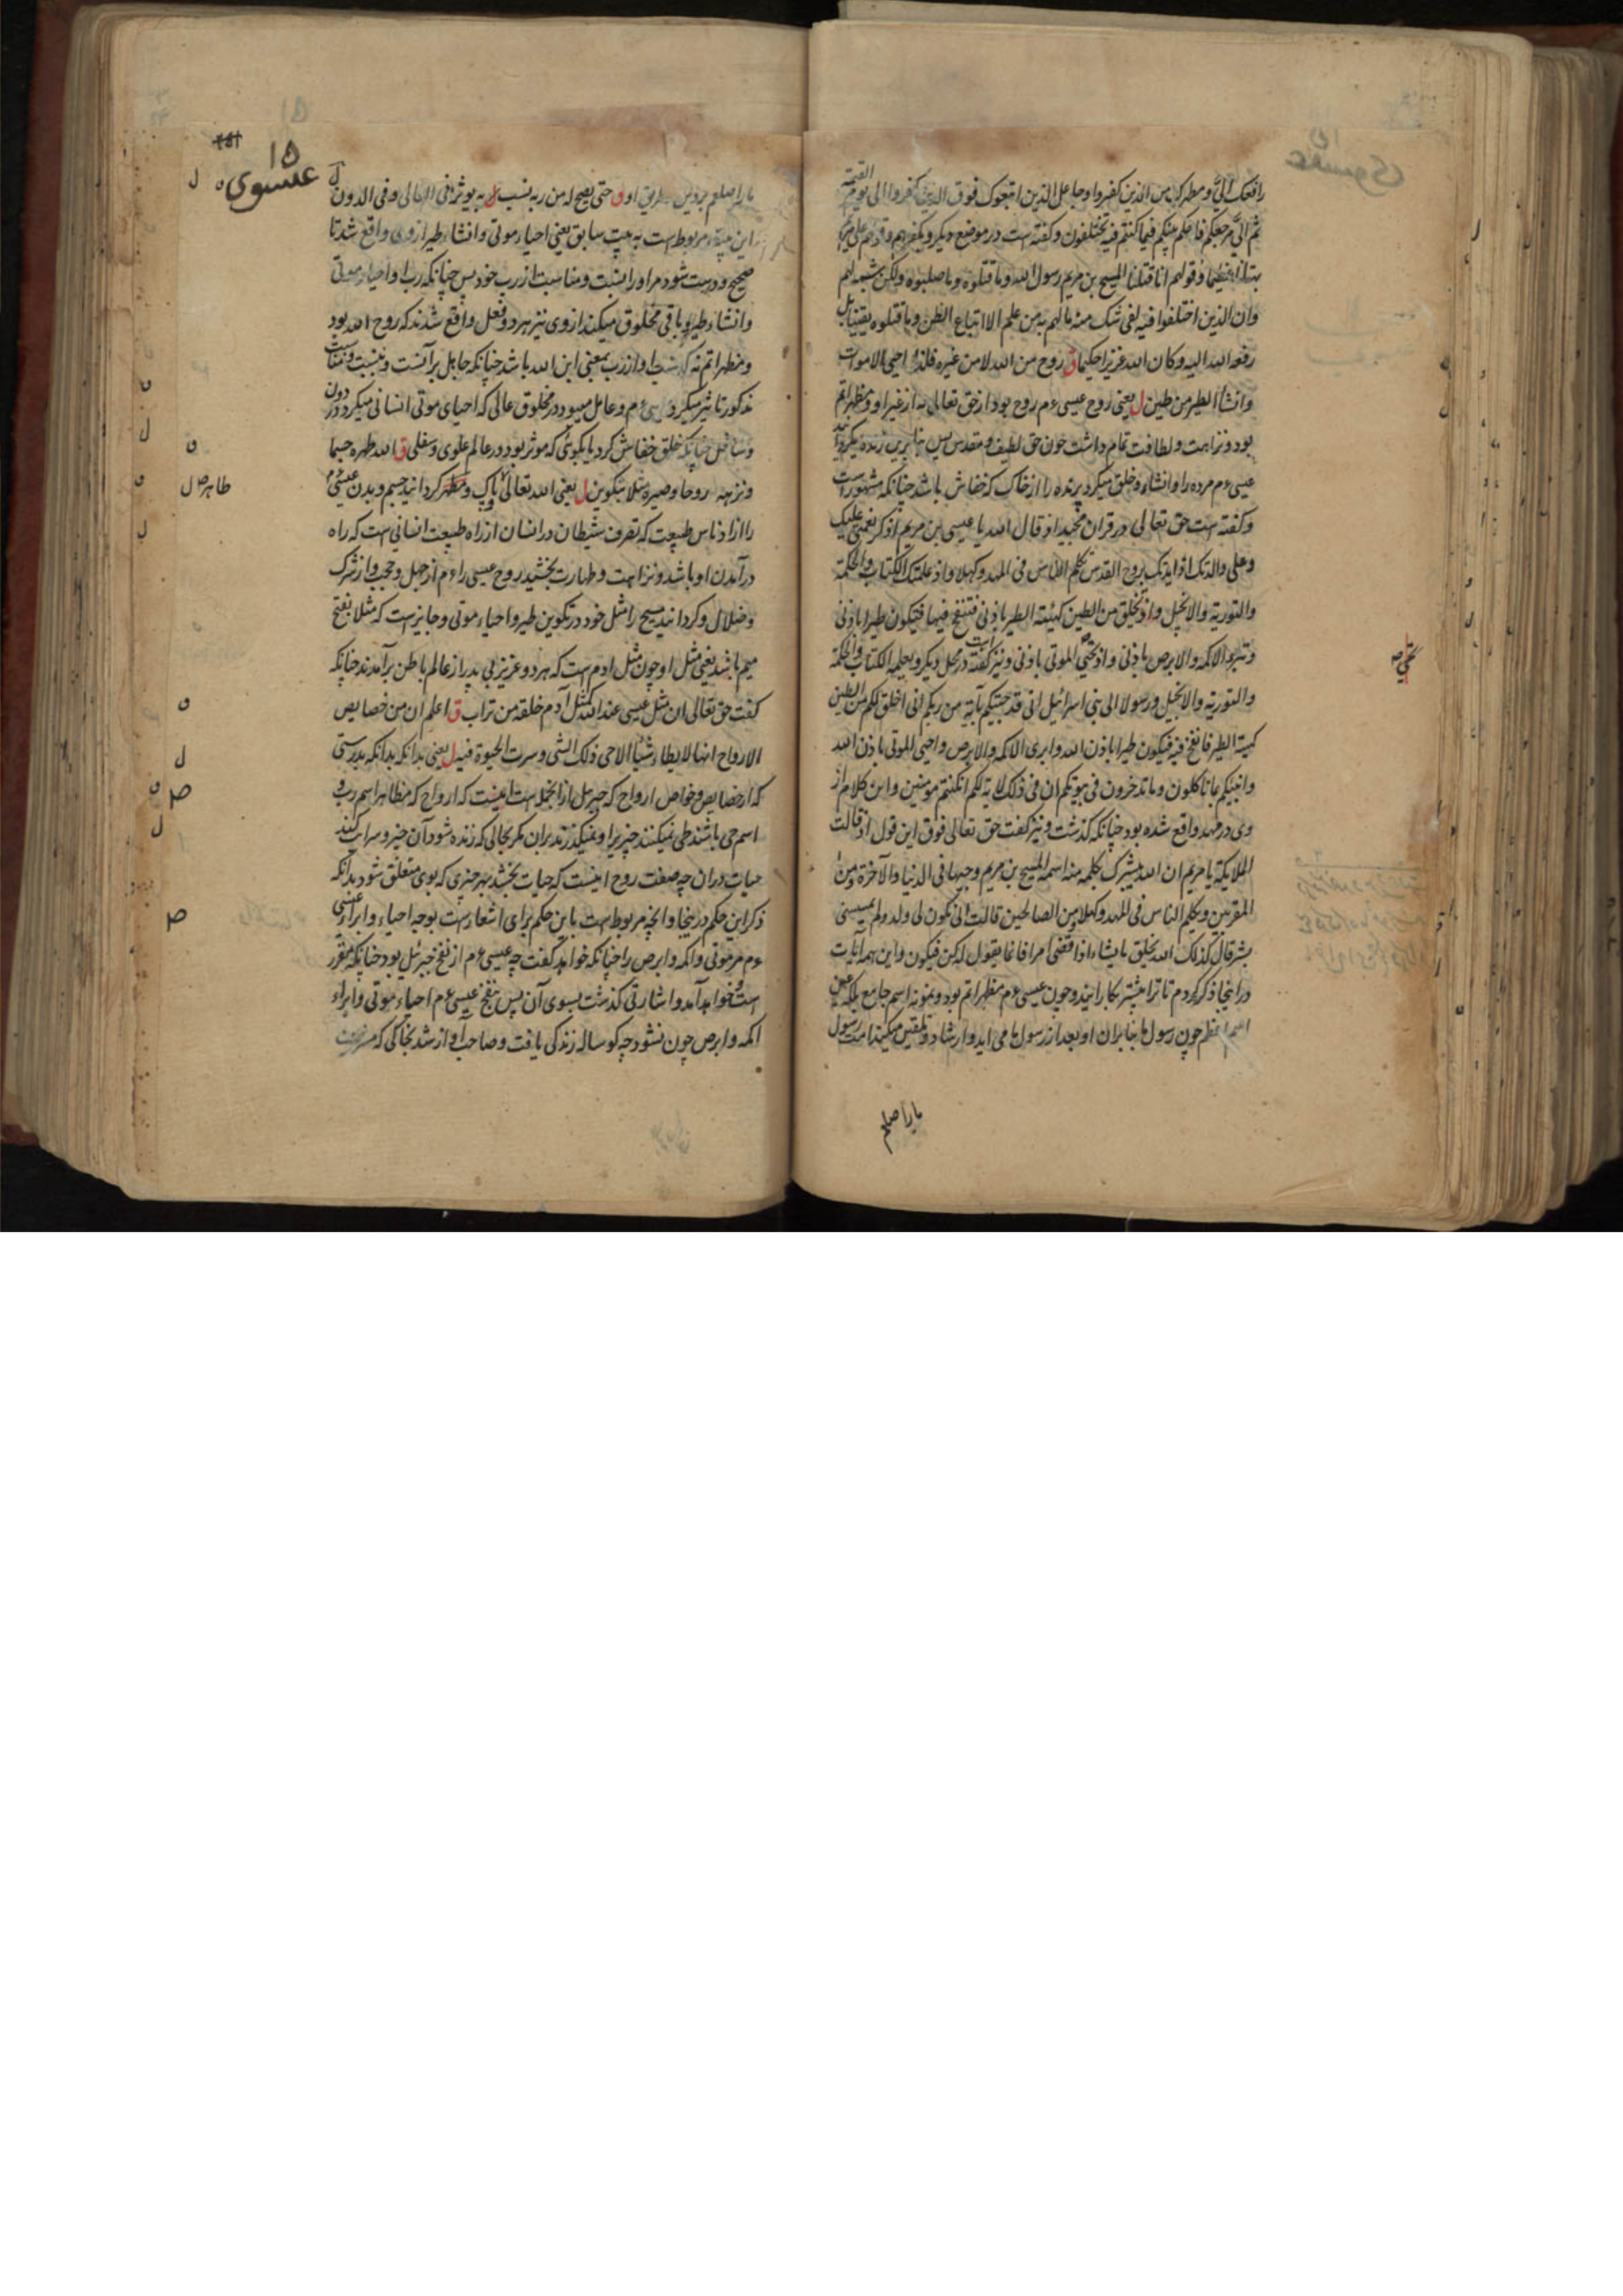 القیمة
رافعک الیّ و مطهرک من الذین کفروا و جاعل الذین اتبعوک فوق الذین کفروا الی یوم
ثم الیّ مرجعکم فاحکم بینکم فیما کنتم فیه تختلفون و کفته است در موضع دیکر و بکفرهم و قولهم علی مریم
بهتانا عظیما و قولهم انا قتلنا المسیح بن مریم رسول الله و ما قتلوه و ما صلبوه ولکن شبه لهم
وان الذین اختلفوا فیه لفی شک منه ما لهم به من علم الا اتباع الظن و ما قتلوه یقینا بل
رفعه الله الیه و کان الله عزیزا حکیما ق روح من الله لا من غیره فلذا احیی الاموات
و انشأ الطیر من طین ل یعنی روح عیسی ءم روح بود از حق تعالی نه از غیر او و مظهر اتم
بود و نزاهت و لطافت تمام داشت چون حق لطیف و مقدس پس بنابرین زنده میکردانید
عیسی ءم مرده را و انشاء و خلق میکرد پرنده را از خاک که خفاش باشد چنانکه مشهور است
و کفته است حق تعالی در قران مجید اذ قال الله یا عیسی بن مریم اذکر نعمتی علیک
و علی والدتک اذ ایدتک بروح القدس تکلم الناس فی المهد و کهلا و اذ علمتک الکتاب و الحکمة
و التوریة و الانجیل و اذ تخلق من الطین کهیئة الطیر باذنی فتنفخ فیها فتکون طیرا باذنی
و تبرء الاکمه و الابرص باذنی و اذ تحیی الموتی باذنی و نیز کفته است در محل دیکر و یعلمه الکتاب و الحکمة
و التوریة و الانجیل و رسولا الی بنی اسرائیل انی قد جئتکم بآیة من ربکم انی اخلق لکم من الطین
کهیئة الطیر فانفخ فیه فیکون طیرا باذن الله و ابری الاکمه و الابرص و احیی الموتی باذن الله
و انبئکم بما تاکلون و ما تدخرون فی بیوتکم ان فی ذلک لایة لکم ان کنتم مومنین و این کلام از
وی در مهد واقع شده بود چنانکه کذشت و نیز کفت حق تعالی فوق این قول اذ قالت
الملایکة یا مریم ان الله یبشرک بکلمة منه اسمه المسیح بن مریم وجیها فی الدنیا و الآخرة و من
المقربین و یکلم الناس فی المهد و کهلا و من الصالحین قالت انی یکون لی ولد و لم یمسسنی
بشر قال کذلک الله یخلق ما یشاء اذا قضی امرا فانما یقول له کن فیکون و این همه آیات
در اینجا ذکر کردم تا ترا بیشتر بکار ایند و چون عیسی ءم مظهر اتم بود و نمونه اسم جامع بلکه عین
اسم اعظم چون رسول ما بنابران او بعد از رسول ما می اید و ارشاد و تلقین میکند امت رسول
ما را صلعم
۱۵
عیسوی
ما را صلعم بر دین و طریق او ق حتی یصح له من ربه نسب به یوثر فی العالی و فی الدون
این بیت مربوط است به بیت سابق یعنی احیاء موتی و انشاء طیر از وی واقع شد تا
صحیح و درست شود مر او را نسبت و مناسبت از رب خود پس چنانکه رب او احیاء موتی
و انشاء طیر و باقی مخلوق میکند از وی نیز هر دو فعل واقع شدند که روح الله بود
و مظهر اتم نه که نسبت او از رب بمعنی ابن الله باشد چنانکه جاهل بر آنست و بنسبت و مناسبت
مذکور تاثیر میکرد عیسی ءم و عامل میبود در مخلوق عالی که احیای موتی انسانی میکرد و در دون
و سافل چنانکه خلق خفاش کرد یا بکوئی که موثر بود در عالم علوی و سفلی ق الله طهره جسما
و نزهه روحا و صیره مثلا بتکوین ل یعنی الله تعالی پاک و مطهر کردانید جسم و بدن عیسی ءم
را از ادناس طبیعت که تصرف شیطان در انسان از راه طبیعت انسانی است که راه
در آمدن او باشد و نزاهت و طهارت بخشید روح عیسی را ءم از جهل و حجب و از شرک
و ضلال و کردانید مسیح را مثل خود در تکوین طیر و احیاء موتی و جایز است که مثلا بفتح
میم باشد یعنی مثل او چون مثل ادم است که هر دو عزیز بی پدر از عالم باطن برآمدند چنانکه
کفت حق تعالی ان مثل عیسی عند الله کمثل آدم خلقه من تراب ق اعلم ان من خصایص
الارواح انها لا یطاء شیئا الا حی ذلک الشی و سرت الحیوة فیه ل یعنی بدانکه بدانکه بدرستی
که از خصایص و خواص ارواح که جبرئیل از انجمله است اینست که ارواح که مظاهر اسم رب و
اسم حی باشند طی نمیکنند چیزیرا و نمیکذرند بران مکر بحالی که زنده شود آن چیز و سرایت کند
حیات دران چه صفت روح اینست که حیات بخشد بهر چیزی که بوی متعلق شود بدانکه
ذکر این حکم در ینجا و انچه مربوط است باین حکم برای اشعار است بوجه احیاء و ابراء عیسی
ءم مر موتی و اکمه و ابرص را چنانکه خواهد کفت چه عیسی ءم از نفخ جبرئیل بود چنانکه مقرر
است و خواهد آمد و اشارتی کذشت بسوی آن پس بنفخ عیسی ءم احیاء موتی و ابراء
اکمه و ابرص چون نشود چه کوساله زندکی یافت و صاحب آواز شد بخاکی که